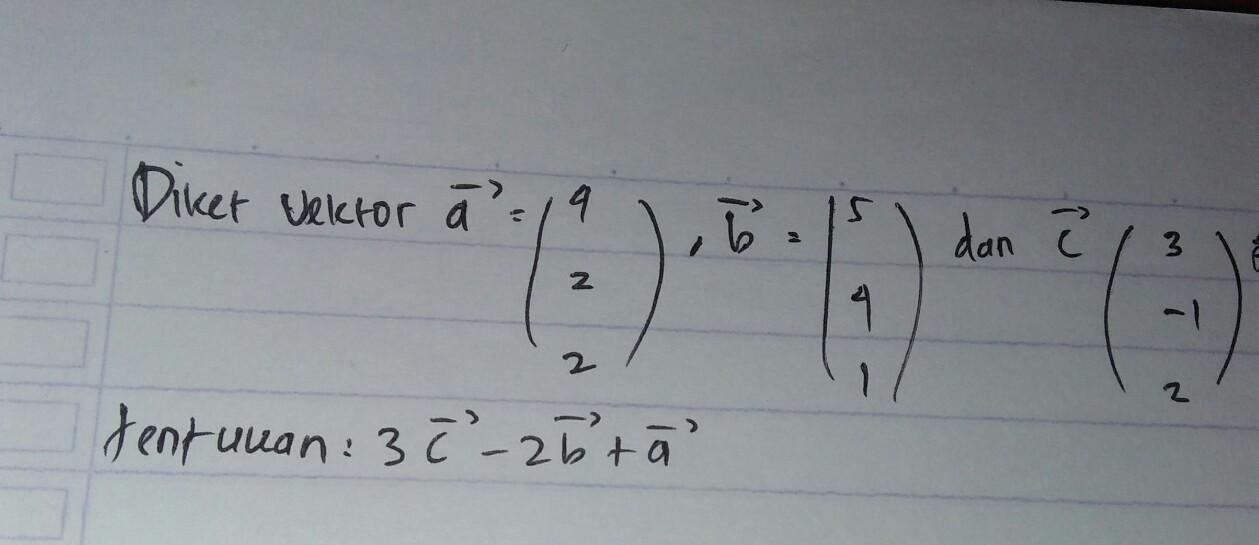 Diket vektor a⃗ = (4 2 2), b⃗ = (5 4 1) dan c⃗ (3 -1 2)
tentukan : 3 c⃗ - 2b⃗ + a⃗